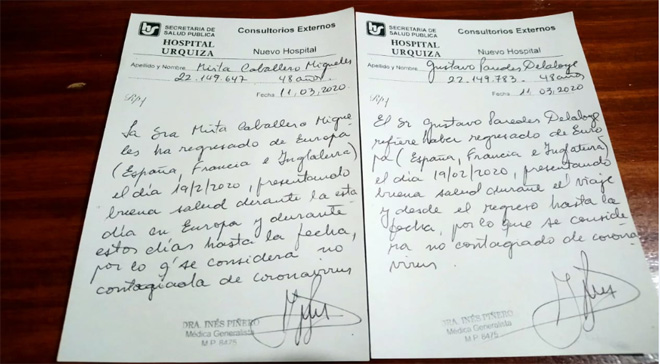 SECRETARIA DE
SALUD PUBLICA
Consultorios Externos
HOSPITAL
URQUIZA
Nuevo Hospital
Apellido y Nombre Mirta Caballero Migueles
22.149.647 48 años
Fecha 11.03.2020
R/p
La Sra Mirta Caballero Migue
les ha regresado de Europa
(España, Francia e Inglaterra)
el día 19/2/2020, presentando
buena salud durante la esta
día en Europa y durante
estos días hasta la fecha,
por lo q' se considera no
contagiada de coronavirus
DRA. INÉS PIÑERO
Médica Generalista
M.P. 6475
SECRETARIA DE
SALUD PUBLICA
Consultorios Externos
HOSPITAL
URQUIZA
Nuevo Hospital
Apellido y Nombre Gustavo Paroles Delaloye
22.149.783. 48 años
Fecha 11.03.2020
R/p
El Sr Gustavo Paroles Delaloye
refiere haber regresado de Euro
pa (España, Francia e Inglaterra)
el día 19/02/2020, presentando
buena salud durante el viaje
y desde el regreso hasta la
fecha, por lo que se conside
ra no contagiado de corona
virus.
DRA. INÉS PIÑERO
Médica Generalista
M.P. 6475